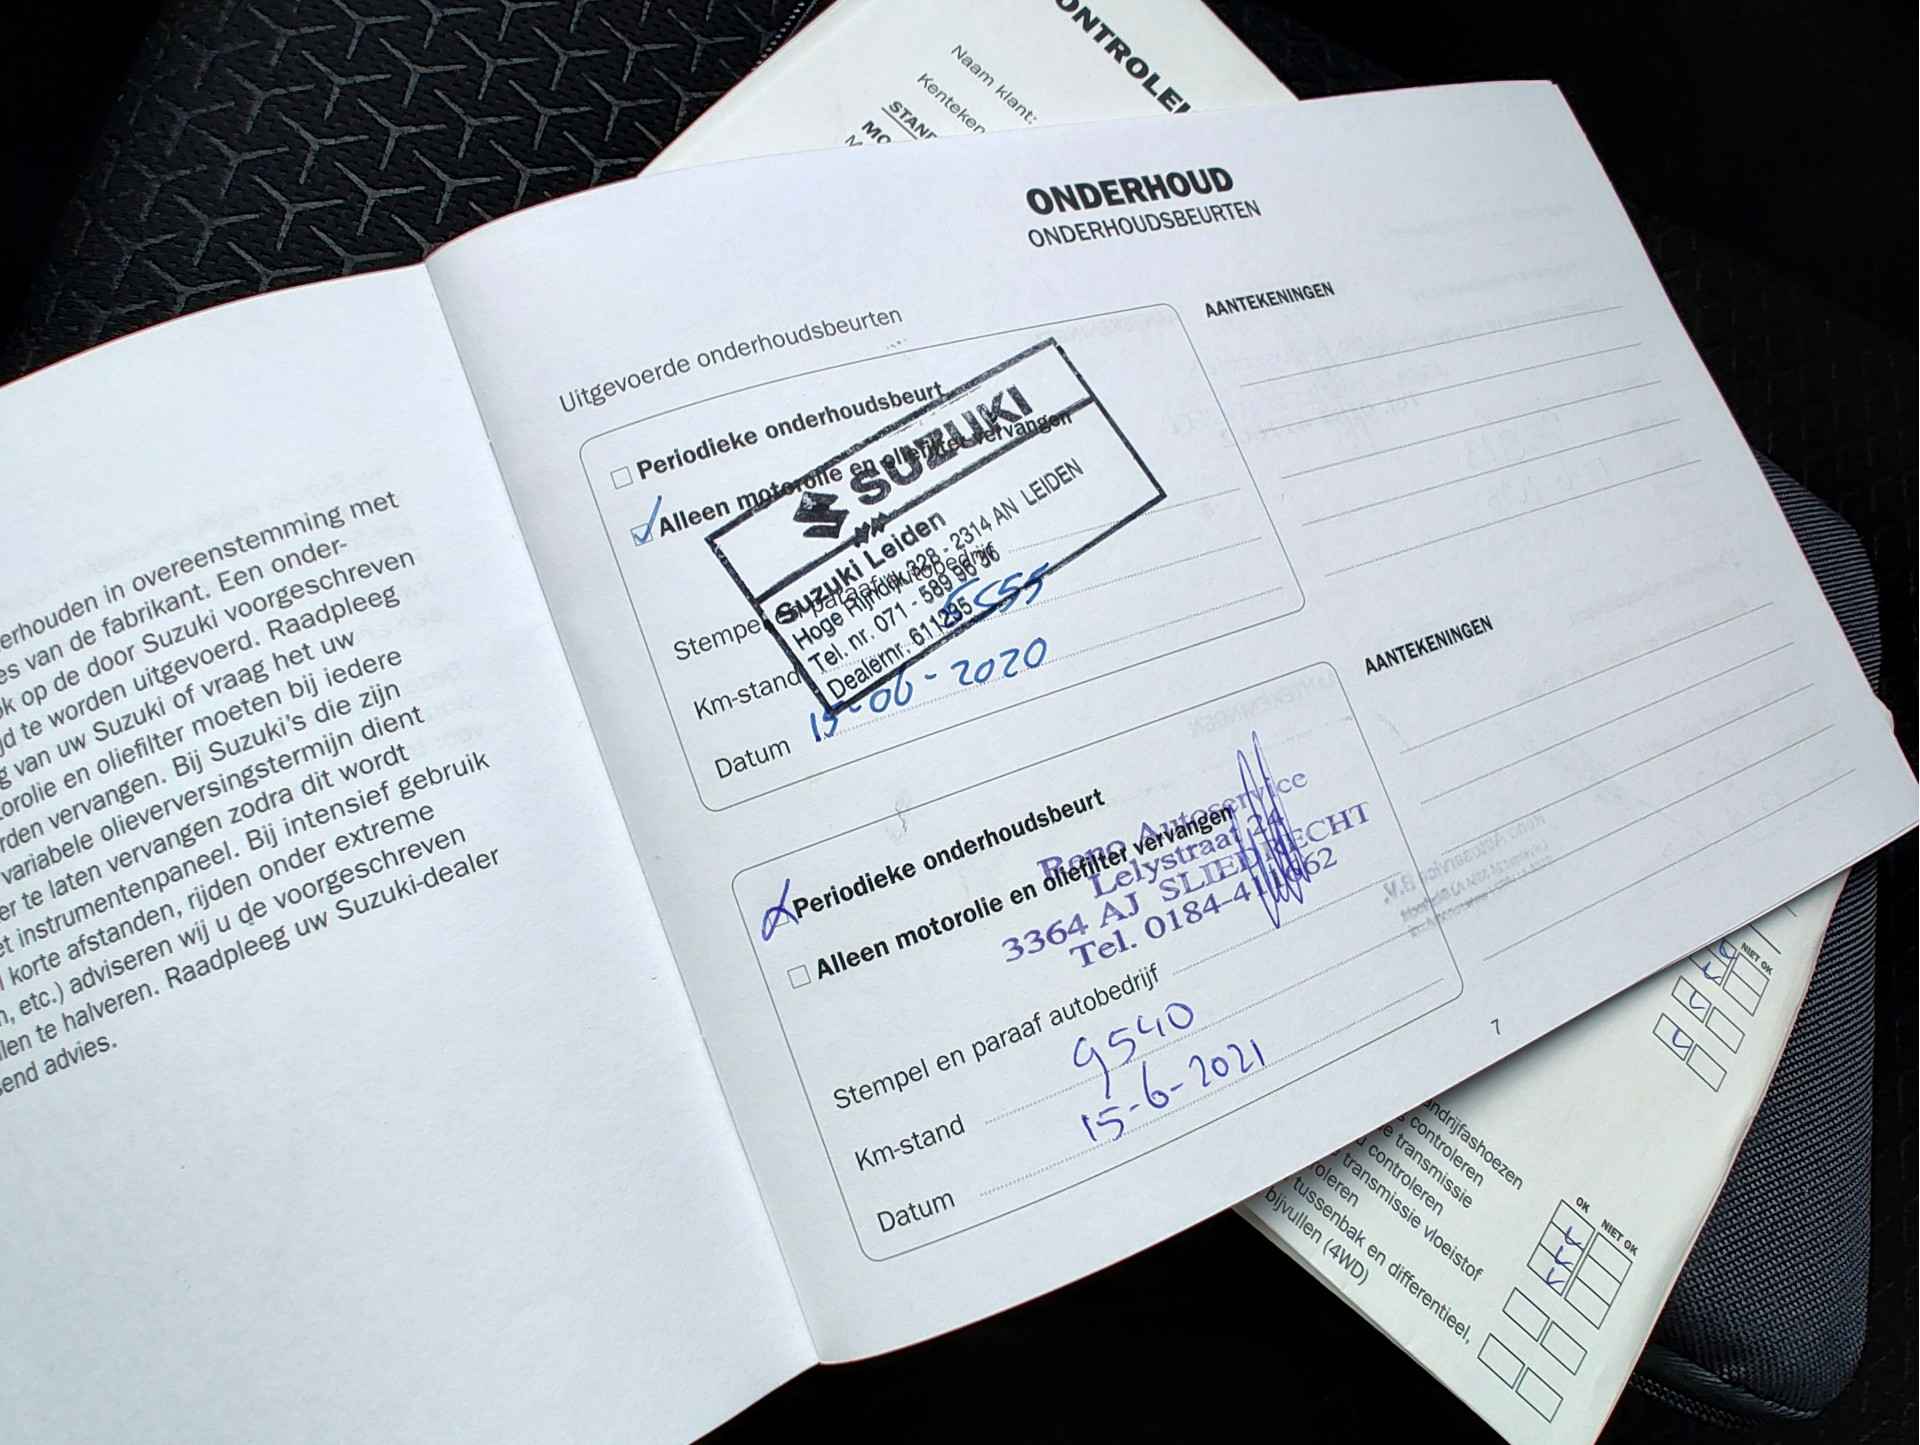 ONTROLE
Naam klant:
Kenteken
STAN
MO
erhouden in overeenstemming met
es van de fabrikant. Een onder-
k op de door Suzuki voorgeschreven
jd te worden uitgevoerd. Raadpleeg
g van uw Suzuki of vraag het uw
torolie en oliefilter moeten bij iedere
rden vervangen. Bij Suzuki's die zijn
variabele olieverversingstermijn dient
er te laten vervangen zodra dit wordt
et instrumentenpaneel. Bij intensief gebruik
korte afstanden, rijden onder extreme
n, etc.) adviseren wij u de voorgeschreven
llen te halveren. Raadpleeg uw Suzuki-dealer
send advies.
ONDERHOUD
ONDERHOUDSBEURTEN
Uitgevoerde onderhoudsbeurten
AANTEKENINGEN
Periodieke onderhoudsbeurt
Alleen motorolie en oliefilter vervangen
SUZUKI
Suzuki Leiden
Hoge Rijndijk 328 - 2314 AN LEIDEN
Tel. nr. 071 - 589 96 36
Dealernr. 611235
Stempel en paraaf autobedrijf
Km-stand 5555
Datum 15-06-2020
AANTEKENINGEN
Periodieke onderhoudsbeurt
Alleen motorolie en oliefilter vervangen
Autoservice
Lelystraat 24
3364 AJ SLIEDRECHT
Tel. 0184-411662
Stempel en paraaf autobedrijf
Km-stand 9540
Datum 15-6-2021
7
NIET OK
andrijfashoezen
controleren
e transmissie
controleren
transmissie vloeistof
oleren
tussenbak en differentieel,
bijvullen (4WD)
OK NIET OK